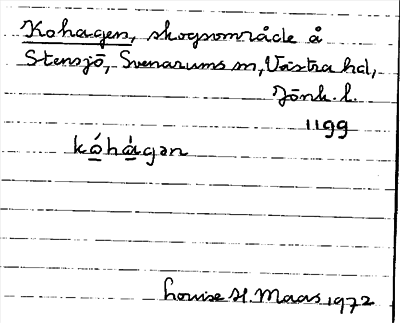 Kohagen, skogsområde å
Stensjö, Svenarums sn, Västra hd,
Jönk. l.
1199
kóhàgən
Louise H. Maas 1972